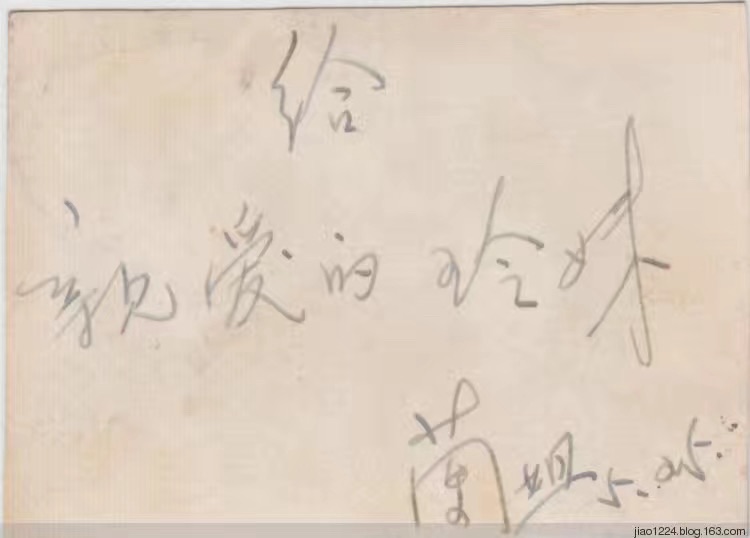 给
親爱的玲妹
蘭姐 5.25.
jiao1224.blog.163.com